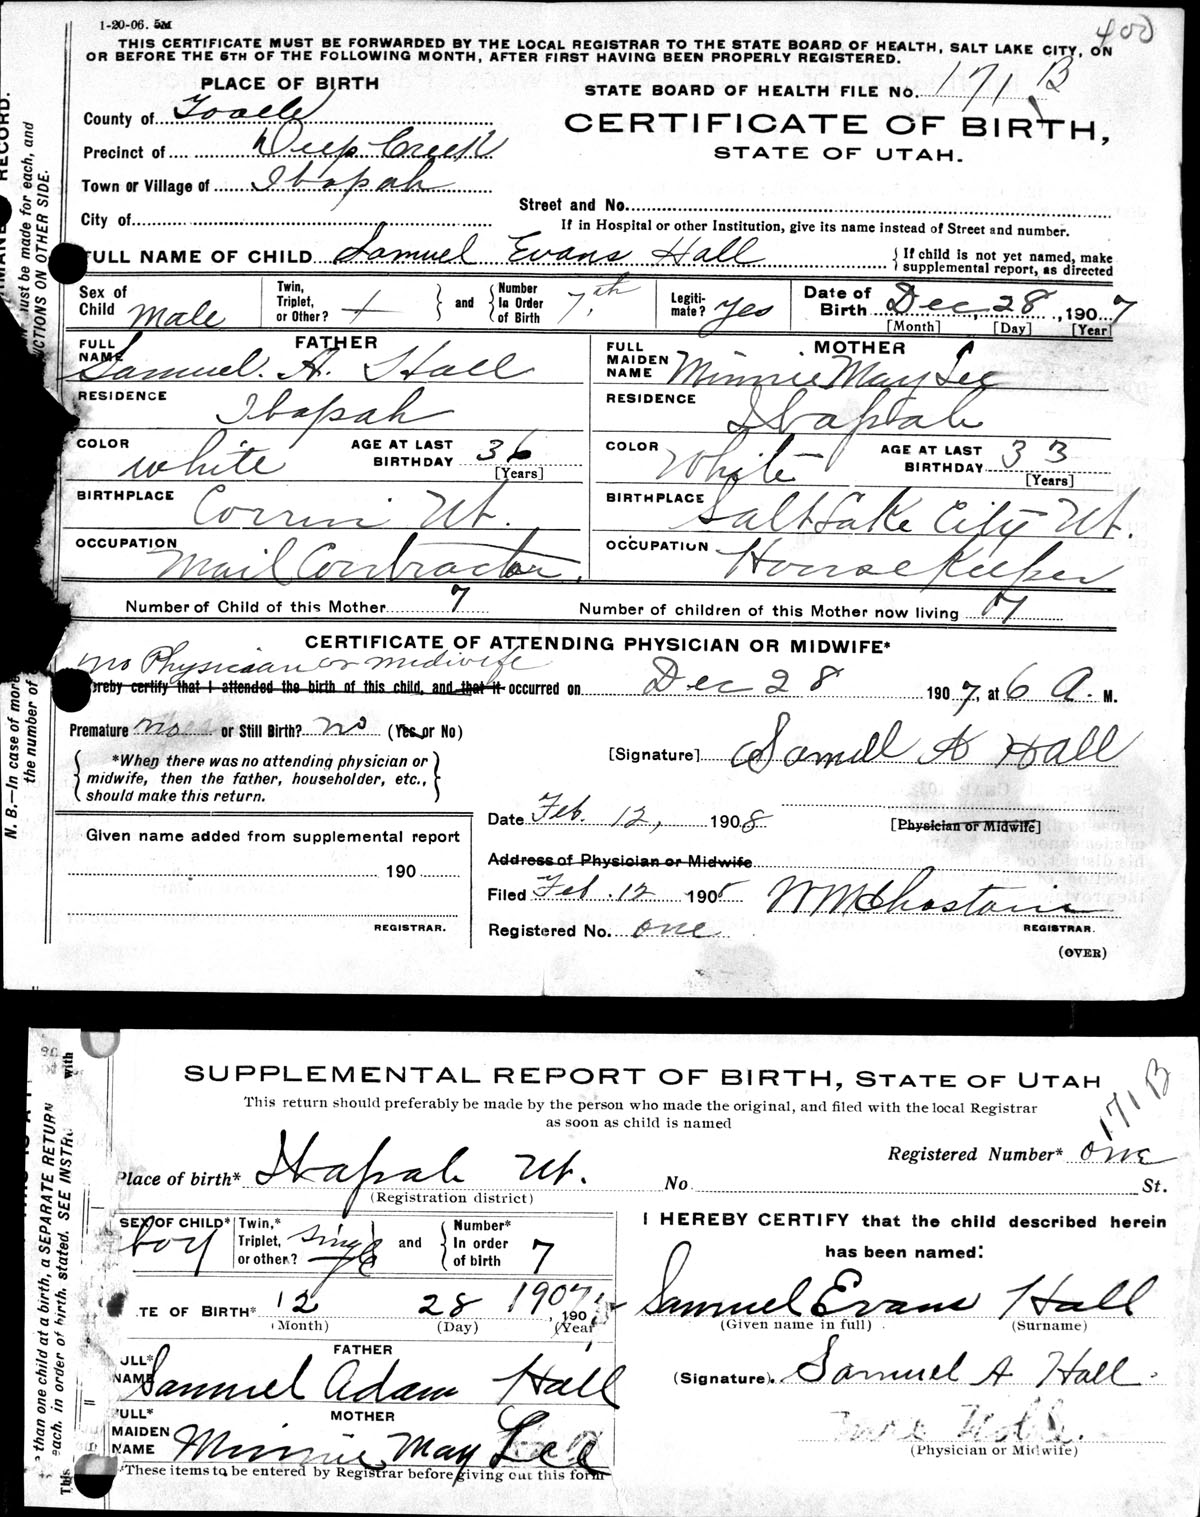 1-20-06. 5M
400
THIS CERTIFICATE MUST BE FORWARDED BY THE LOCAL REGISTRAR TO THE STATE BOARD OF HEALTH, SALT LAKE CITY, ON
OR BEFORE THE 5TH OF THE FOLLOWING MONTH, AFTER FIRST HAVING BEEN PROPERLY REGISTERED.
PLACE OF BIRTH
STATE BOARD OF HEALTH FILE No. 171 B
County of Tooele
CERTIFICATE OF BIRTH,
STATE OF UTAH.
Precinct of Deep Creek
Town or Village of Ibapah
Street and No.
City of
If in Hospital or other Institution, give its name instead of Street and number.
FULL NAME OF CHILD Samuel Evans Hall
If child is not yet named, make
supplemental report, as directed
Sex of Child Male
Twin, Triplet, or Other? +
and Number In Order of Birth 7th
Legiti-mate? Yes
Date of Birth Dec, 28, 1907
[Month] [Day] [Year]
FATHER
FULL NAME Samuel. A. Hall
MOTHER
FULL MAIDEN NAME Minnie May Lee
RESIDENCE Ibapah
RESIDENCE Ibapah
COLOR white AGE AT LAST BIRTHDAY 36 [Years]
COLOR White AGE AT LAST BIRTHDAY 33 [Years]
BIRTHPLACE Corrin Ut.
BIRTHPLACE Salt Lake City Ut.
OCCUPATION Mail Contractor.
OCCUPATION House Keeper
Number of Child of this Mother 7
Number of children of this Mother now living 7
CERTIFICATE OF ATTENDING PHYSICIAN OR MIDWIFE*
no Physician or midwife
ereby certify that I attended the birth of this child, and that it occurred on Dec 28 1907, at 6 A. M.
Premature no or Still Birth? no (Yes or No)
[Signature] Samuel A Hall
*When there was no attending physician or
midwife, then the father, householder, etc.,
should make this return.
Date Feb. 12, 1908
[Physician or Midwife]
Given name added from supplemental report
190
REGISTRAR.
Address of Physician or Midwife
Filed Feb. 12 190
W M Chastain
REGISTRAR.
Registered No. one
(OVER)
RECORD.
must be made for each, and
CTIONS ON OTHER SIDE.
N. B.—In case of more
the number of
SUPPLEMENTAL REPORT OF BIRTH, STATE OF UTAH
This return should preferably be made by the person who made the original, and filed with the local Registrar
as soon as child is named
171 B
Registered Number* one
Place of birth* Ibapah Ut. No. St.
(Registration district)
SEX OF CHILD* boy
Twin,* Triplet, or other? single
and Number* In order of birth 7
I HEREBY CERTIFY that the child described herein
has been named:
TE OF BIRTH* 12 28 1907, 190
(Month) (Day) (Year)
Samuel Evans Hall
(Given name in full) (Surname)
FATHER
ULL* NAME Samuel Adam Hall
(Signature). Samuel A Hall.
MOTHER
ULL* MAIDEN NAME Minnie May Lee
(Physician or Midwife)
*These items to be entered by Registrar before giving out this form
than one child at a birth, a SEPARATE RETURN
each, in order of birth, stated. SEE INSTR
with
This